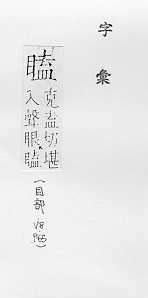 字彙
瞌
克盍切堪
入聲眼瞌
(目部